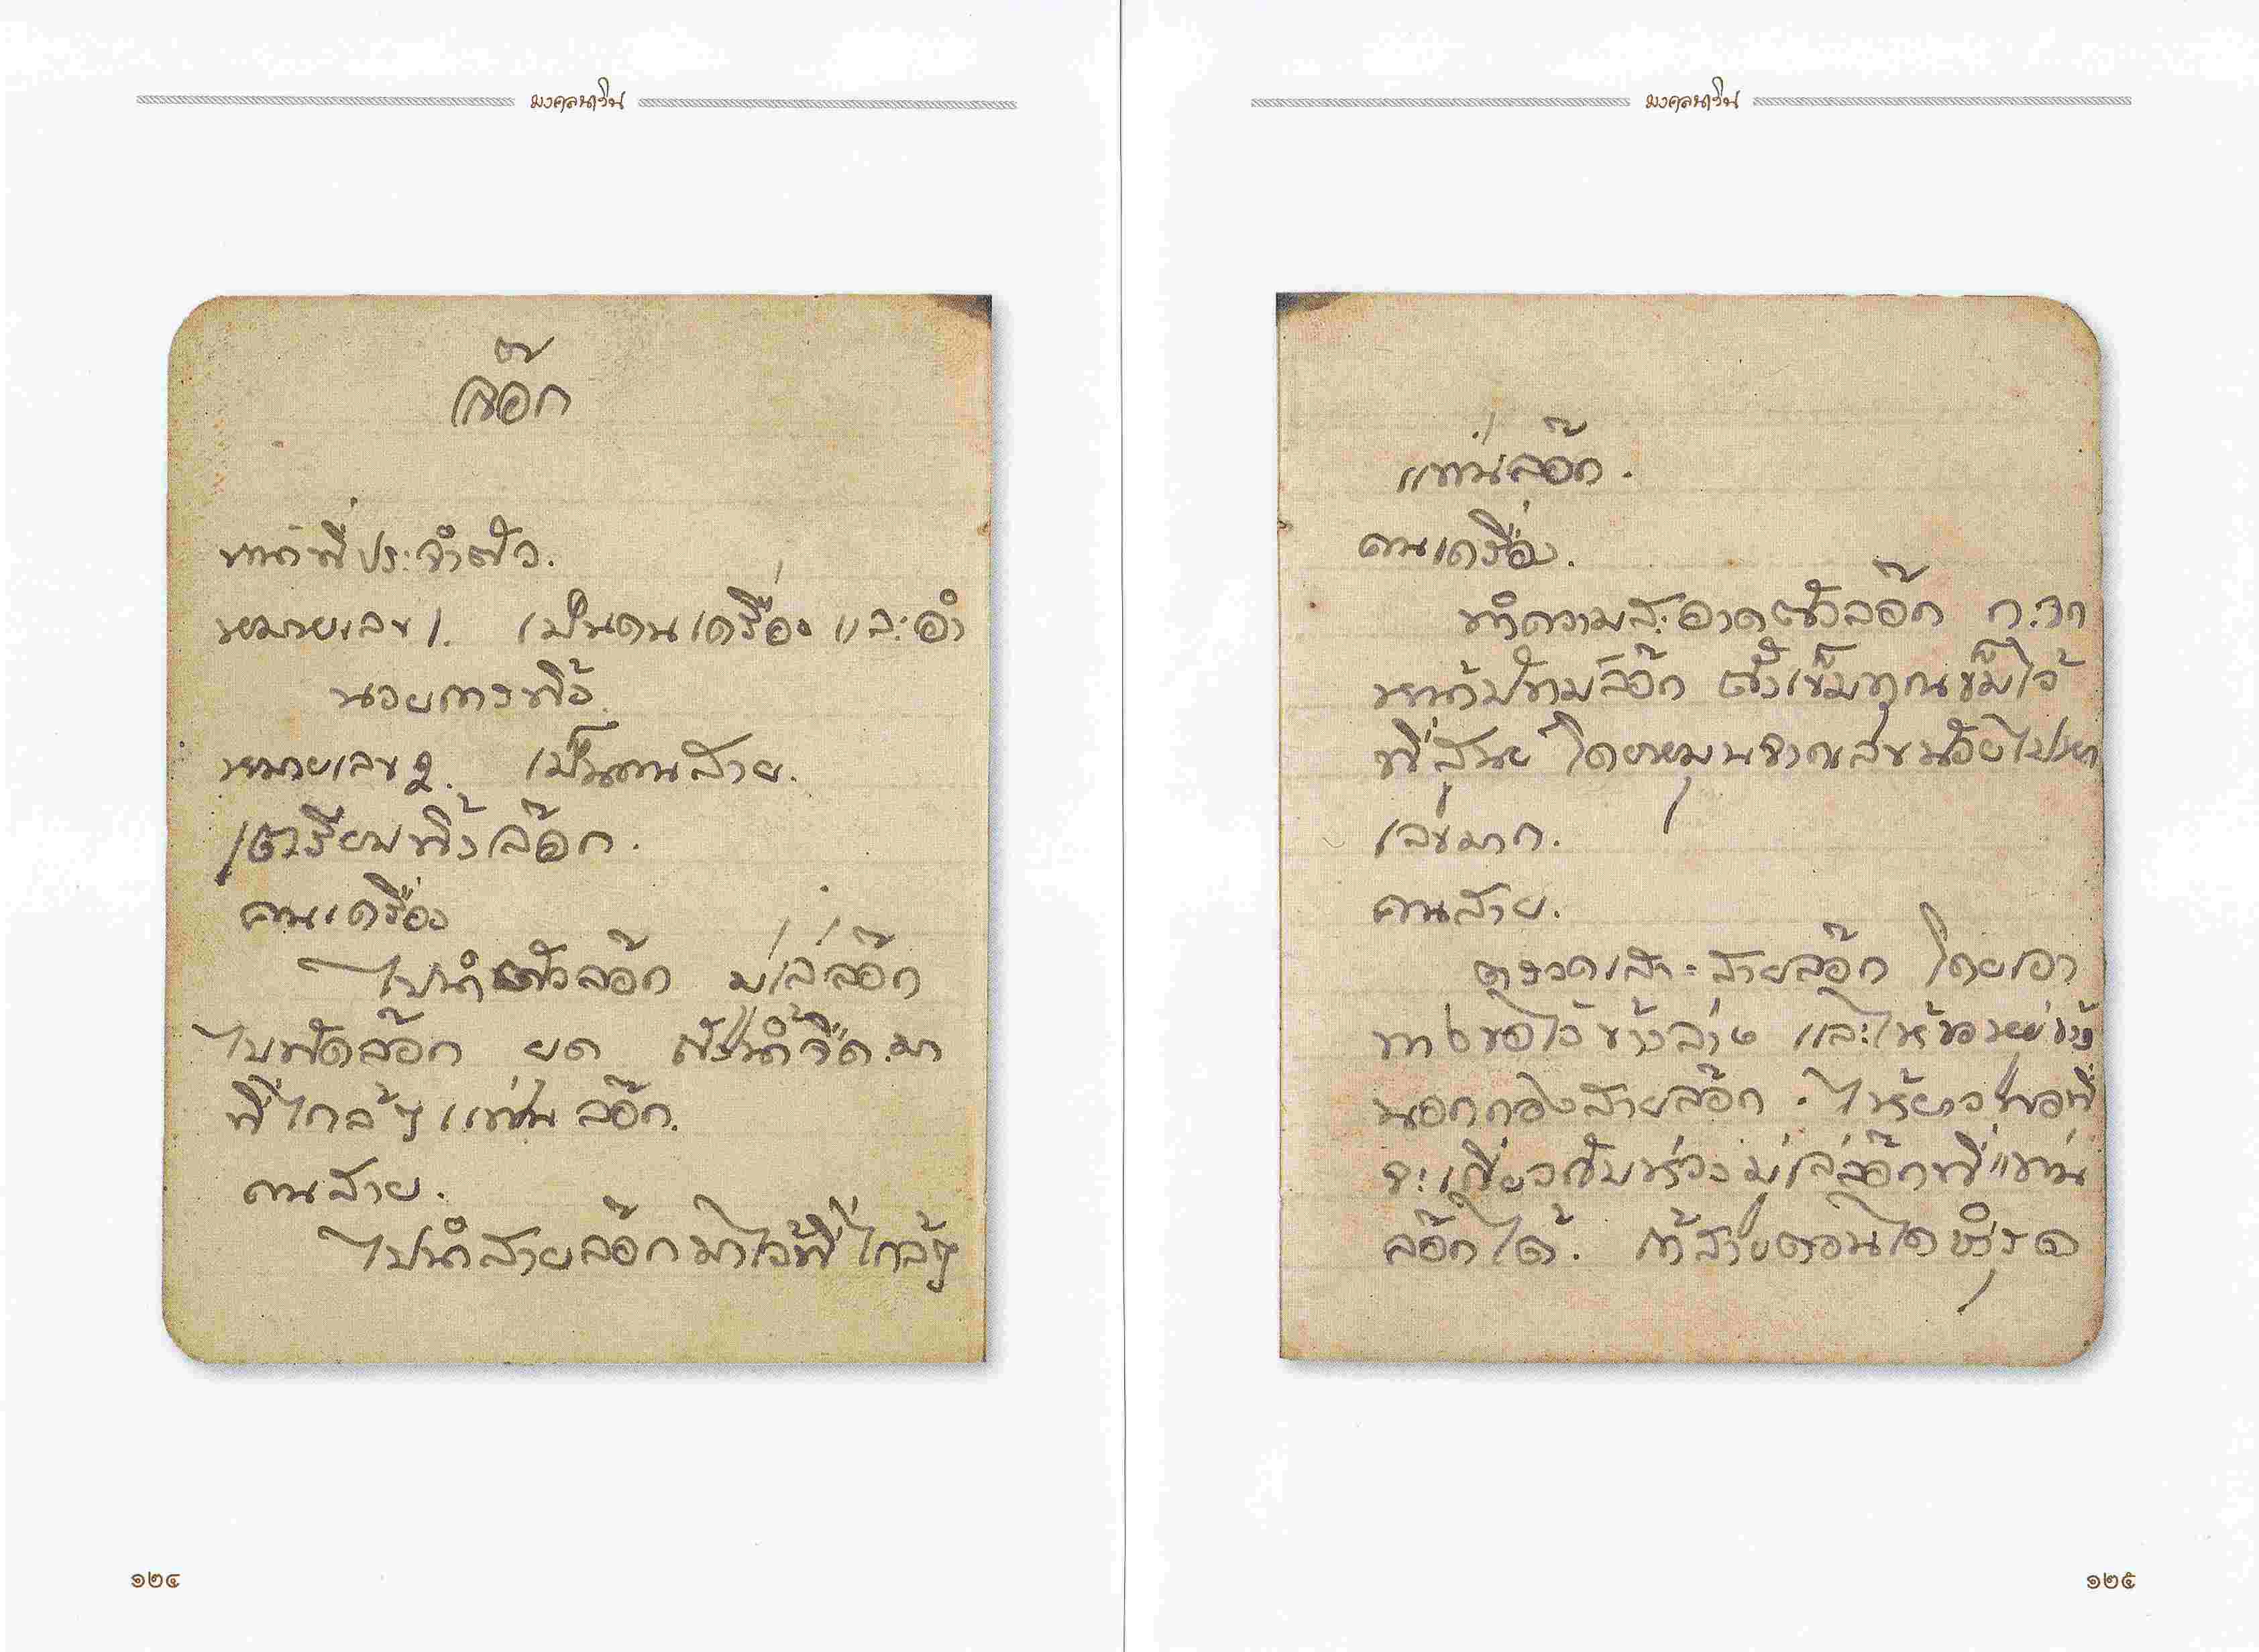 มงคลนาวิน
ล๊อก
หน้าที่ประจำตัว.
หมายเลข 1. เป็นคนเครื่อง และอำ
นวยการทิ้ง.
หมายเลข 2. เป็นคนสาย.
เตรียมทิ้งล๊อก.
คนเครื่อง
ไปนำตัวล๊อก มู่เล่ล๊อก
ล๊อก ยด น้ำจืด.มา
ที่ใกล้ๆ แท่นล๊อก.
คนสาย.
ไปนำสายล๊อกมาไว้ที่ใกล้ๆ
๑๒๔
มงคลนาวิน
แท่นล๊อก.
คนเครื่อง.
ทำความสะอาดตัวล๊อก
หน้าปัทมล๊อก ตั้งเข็มทุกเข็มไว้
ที่สูนย์ โดยหมุนจากเลขน้อยไปหา
เลขมาก.
คนสาย.
ตรวดและสายล๊อก โดยเอา
ขอไว้ข้างล่าง และให้ขออยู่ข้าง
นอกกองสายล๊อก. ให้ยาวพอที่
จะเกี่ยวกับห่วงมู่เล่ล๊อกที่แท่น
ล๊อกได้. ถ้าสายตอนใดชำรุด
๑๒๕